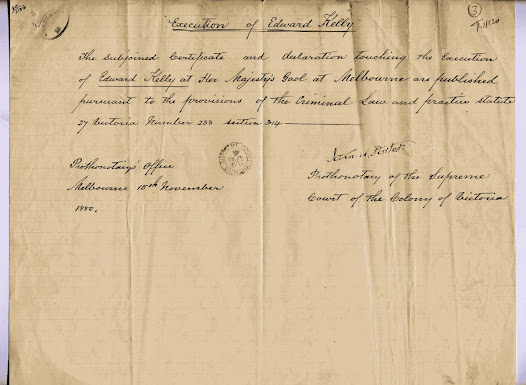 Execution of Edward Kelly
The subjoined Certificate and declaration touching the Execution
of Edward Kelly at Her Majesty's Gaol at Melbourne are published
pursuant to the provisions of the Criminal Law and practice statute
27 Victoria Number 233 section 314
Prothonotary's Office
Melbourne 15th November
1880.
Prothonotary of the Supreme
Court of the Colony of Victoria